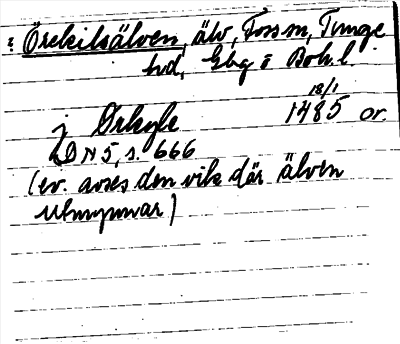 : Örekilsälven, älv, Foss sn, Tunge
hd, Gbg o Boh. l.
18/1
j Örkyle 1485 or.
DN 5, s. 666
(ev. avses den vik där älven
utmynnar)